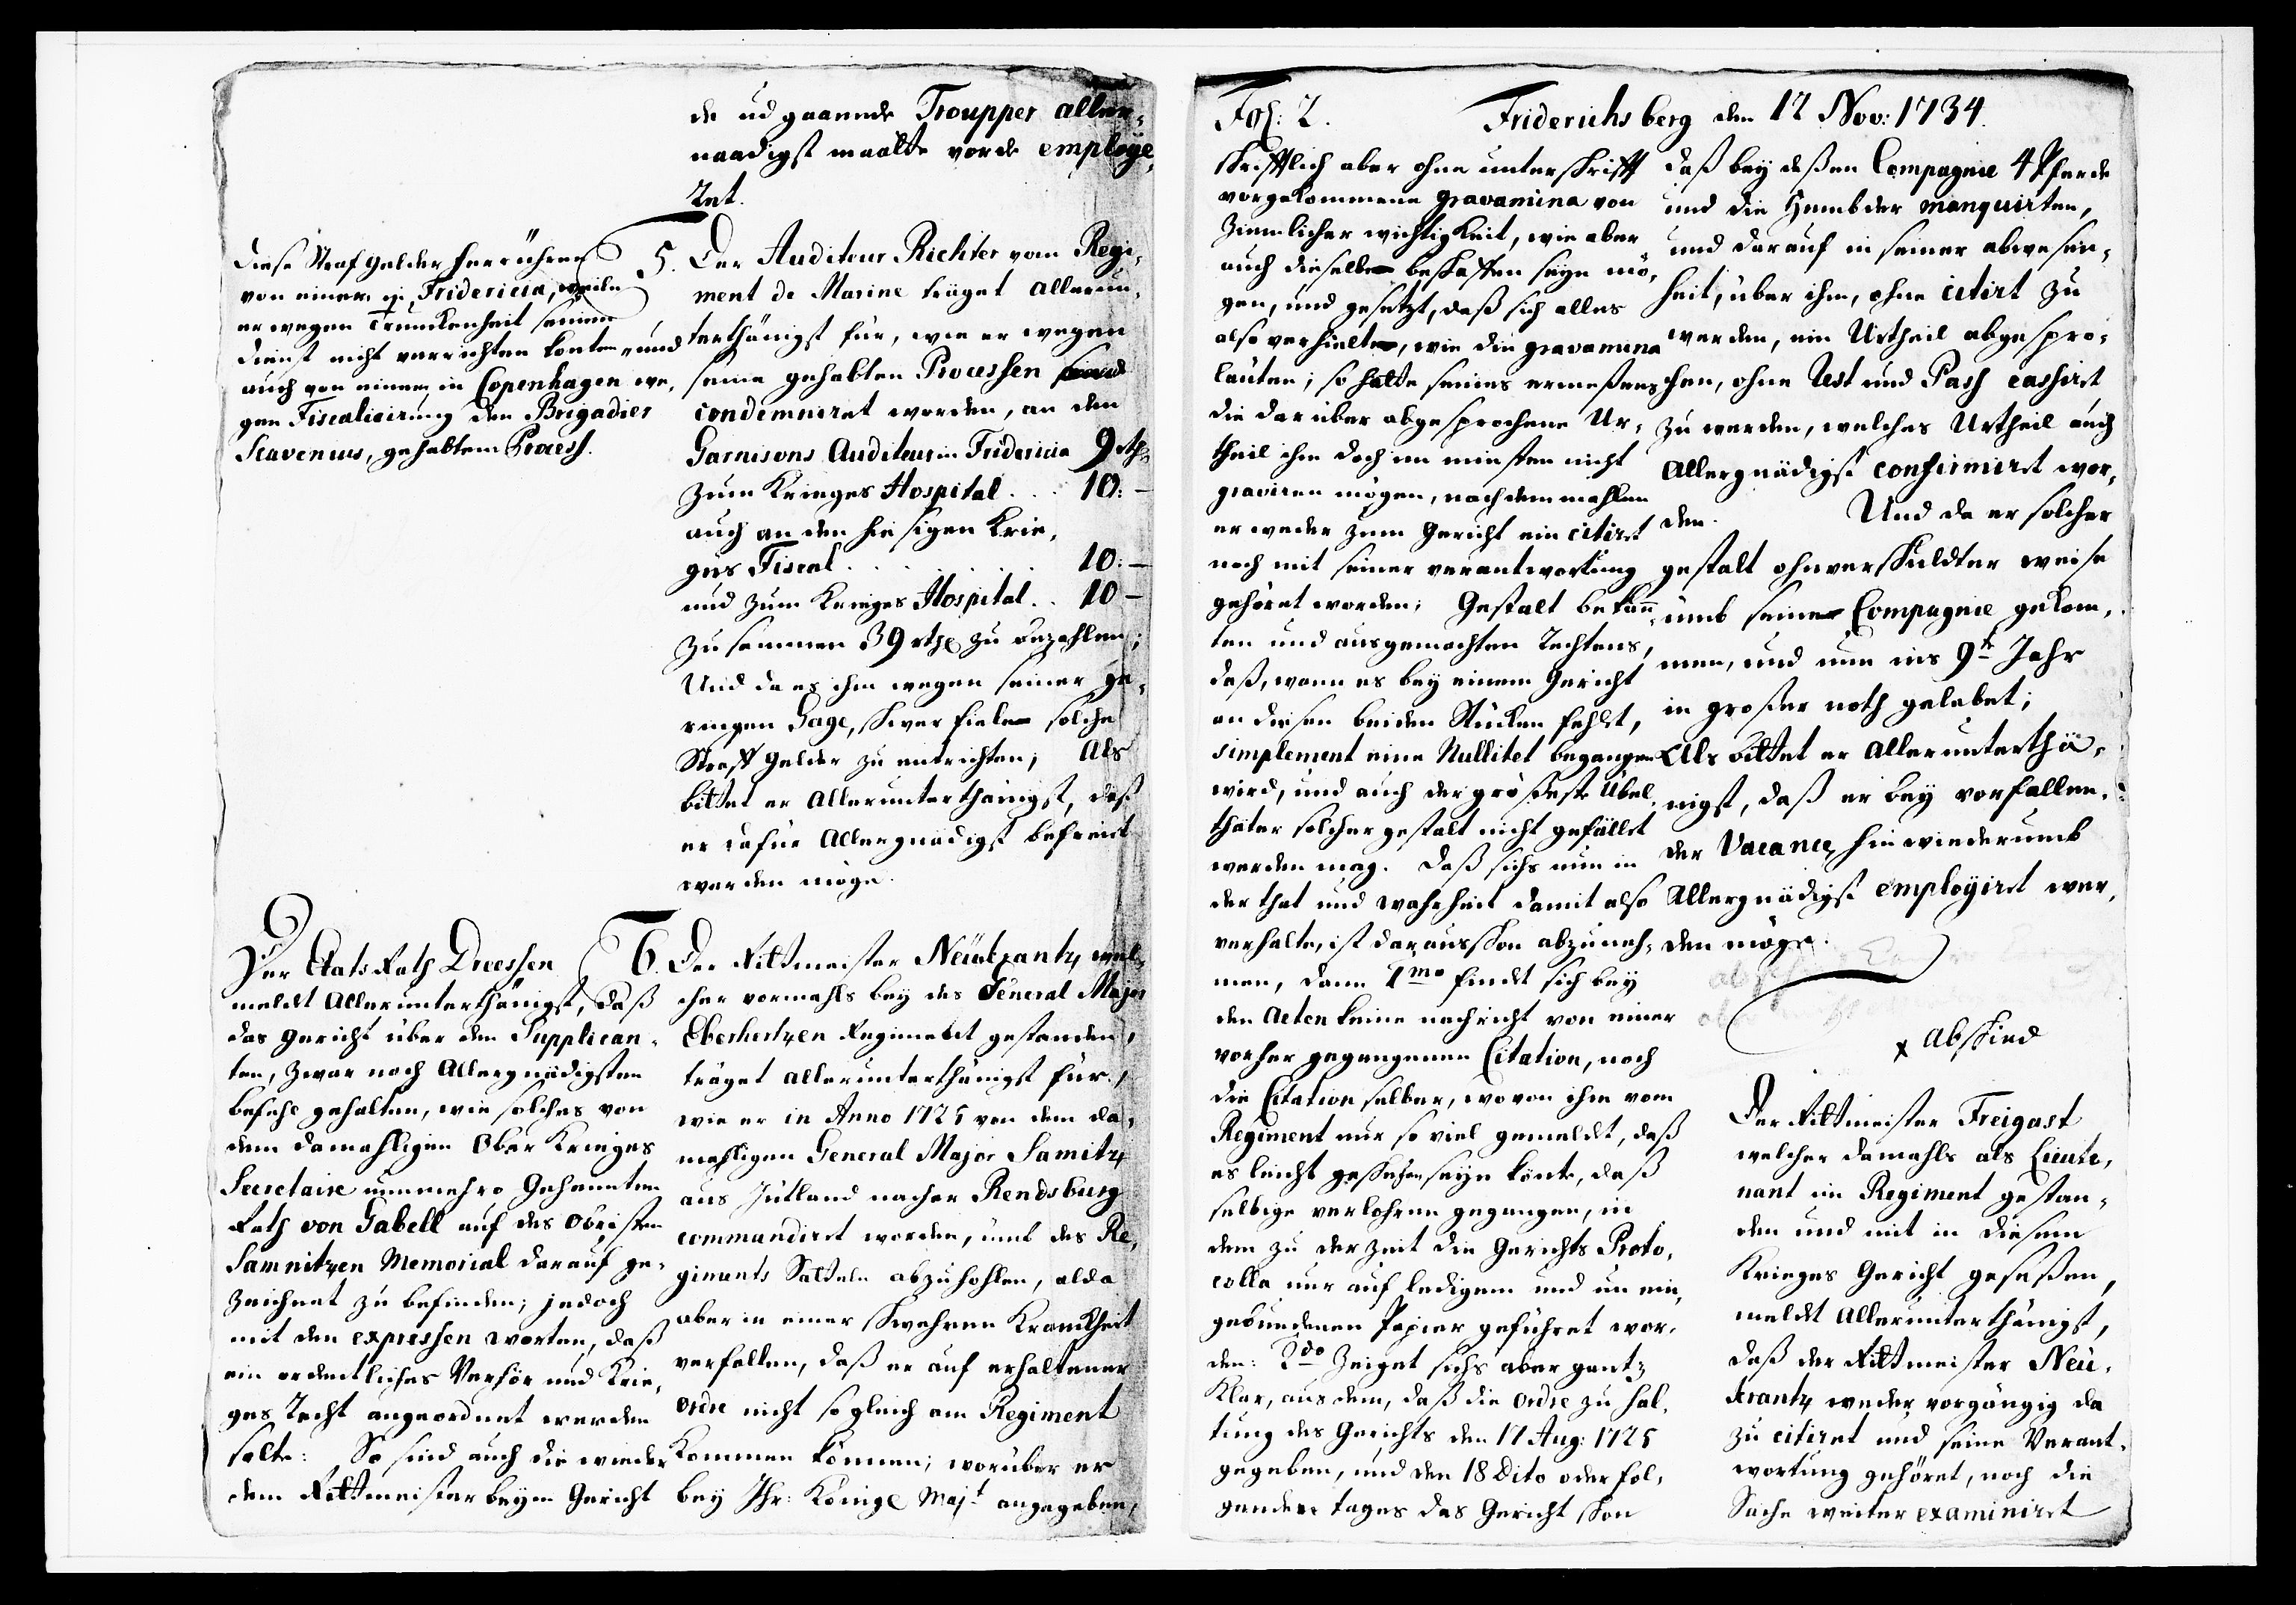 de udgaaende Troupper aller-
naadigst maatte vorde employe-
ret.
Diese Strafgelder herrühren
von einem in Fridericia, weiln
er wegen Trunckenheit seinen
dienst nicht verrichten konte, und
auch von einem in Copenhagen we-
gen Fiscalisirung den Brigadier
Scavenius, gehabtem Process.
5. Der Auditeur Richter vom Regi-
ment de Marine träget allerun-
terthänigst für, wie er wegen
seine gehabten Processen
condemniret worden, an den
Garnisons Auditeur in Fridericia 9 rthr
zum Krieges Hospital . . . 10: -
auch an den hiesigen Krie-
ges Fiscal . . . . . . . 10: -
und zum Krieges Hospital . . 10 -
zusammen 39 rthr zu bezahlen;
Und da es ihm wegen seiner ge-
ringen Gage, schwer fiele solche
Straff gelder zu entrichten; Als
bittet er allerunterthänigst, daß
er dafür allergnädigst befreiet
werden möge.
Der Etats Rath Dreessen
meldet allerunterthänigst, daß
das gericht über den Supplican-
ten, zwar nach allergnädigsten
befehl gehalten, wie solches von
dem damahligen Ober Krieges
Secretaire nunmehro Geheimten
Rath von Gabell auf des Obristen
Samnitzen Memorial darauf ge-
zeichnet zu befinden; jedoch
mit den expressen worten, daß
ein ordentliches Verhör und Krie-
ges Recht angeordnet werden
solte: So sind auch die wieder
dem Rittmeister beym Gericht
6. Der Rittmeister Neukrantz, wel-
cher vormahls bey des General Major
Eberhertzen Regiment gestanden,
träget allerunterthänigst für,
wie er in Anno 1725 von dem da-
mahligen General Major Samitz
aus Jütland nacher Rendsburg
commandiret worden, umb des Re-
giments Satteln abzuhohlen, alda
aber in einer schwehren Kranckheit
verfallen, daß er auf erhaltener
Ordre nicht sogleich am Regiment
Kommen können; worüber er
bey Ihr: Königl Majt angegeben,
Fol: 2. Friderichsberg den 12 Nov: 1734.
schrifftlich aber ohne unterschrifft
vorgekommene gravamina von
ziemlicher wichtigkeit, wie aber
auch dieselbe beschaffen seyn mö-
gen, und gesetzt, daß sich alles
also verhielte, wie die gravamina
lauten; so hatte seines ermeßens
die darüber abgesprochene Ur-
theil ihm doch im minsten nicht
graviren mögen, nachdemmahlen
er weder zum Gericht ein citiret
noch mit seiner verantwortung
gehöret worden; Gestalt bekann-
ten und ausgemachten Rechtens,
daß, wann es bey einem Gericht
an diesen beiden Stücken fehlet,
simplement eine Nullitet begangen
wird, und auch der größeste Übel-
thäter solchergestalt nicht gefället
werden mag. Daß sichs nun in
der that und wahrheit damit also
verhalte, ist daraus schon abzuneh-
men, dann 1mo findt sich bey
den Acten keine nachricht von einer
vorher gegangenen Citation, noch
die Citation selber, wovon ihm vom
Regiment nur so viel gemeldet, daß
es leicht geschehen seyn könte, daß
selbige verlohren gegangen, in
dem zu der zeit die Gerichts Proto-
colla nur auf ledigem und un ein-
gebundenen Papier geführet wor-
den: 2do Zeiget sichs aber gantz
Klar, aus dem, daß die Ordre zu hal-
tung des Gerichts den 17 Aug: 1725
gegeben, und den 18 Dito oder fol-
genden tages das Gericht schon
daß bey deßen Compagnie 4 Pferde
und die Hembder manquirten,
und darauf in seiner abwesen-
heit, über ihm, ohne citirt zu
werden, ein Urtheil abgespro-
chen, ohne Rest und Pass cassiret
zu werden, welches Urtheil auch
Allergnädigst confirmiret wor-
den. Und da er solcher
gestalt ohnverschuldter weise
umb seine Compagnie gekom-
men, und nun ins 9te Jahr
in großer noth gelebet;
Als bittet er allerunterthä-
nigst, daß er bey vorfallen-
der Vacance, hinwiederumb
Allergnädigst employiret wer-
den möge.
x Abschied
Der Rittmeister Freigast
welcher damahls als Lieute-
nant im Regiment gestan-
den und mit in diesem
Krieges Gericht geseßen,
meldet allerunterthänigst,
daß der Rittmeister Neu-
krantz weder vorgängig da
zu citiret und seine Verant-
wortung gehöret, noch die
Sache weiter examiniret